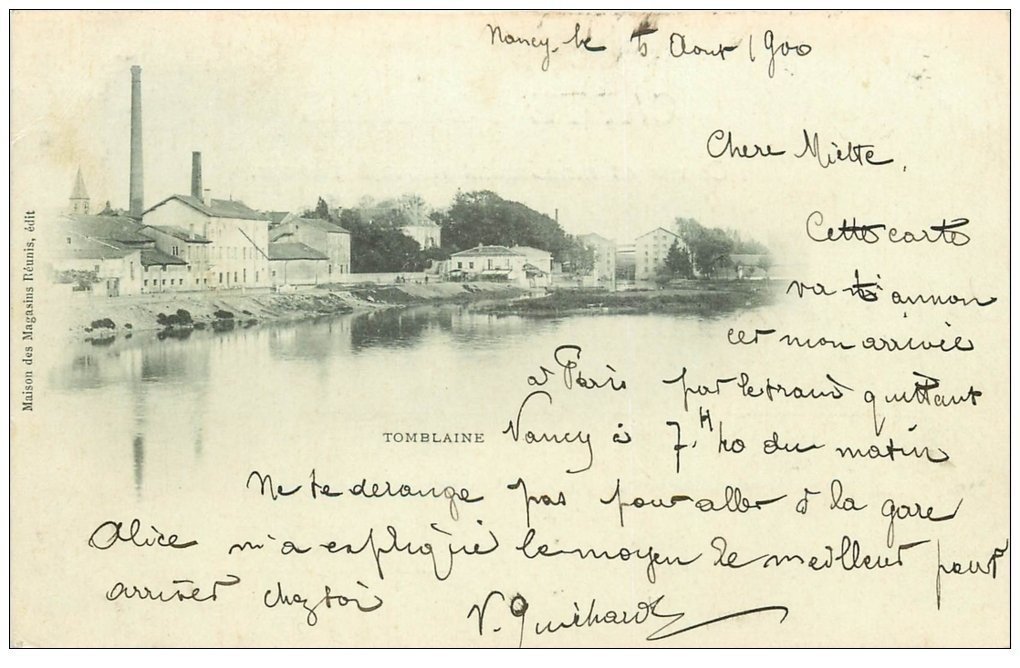 Nancy, le 5 Aout 1900
Chere Miette,
Cette carte
va t'annon
cer mon arrivée
a Paris par le train quittant
TOMBLAINE
Nancy à 7.H du matin
Ne te derange pas pour aller à la gare
Alice m'a expliqué le moyen le meilleur pour
arriver chez toi
V. Guéhard
Maison des Magasins Réunis, édit